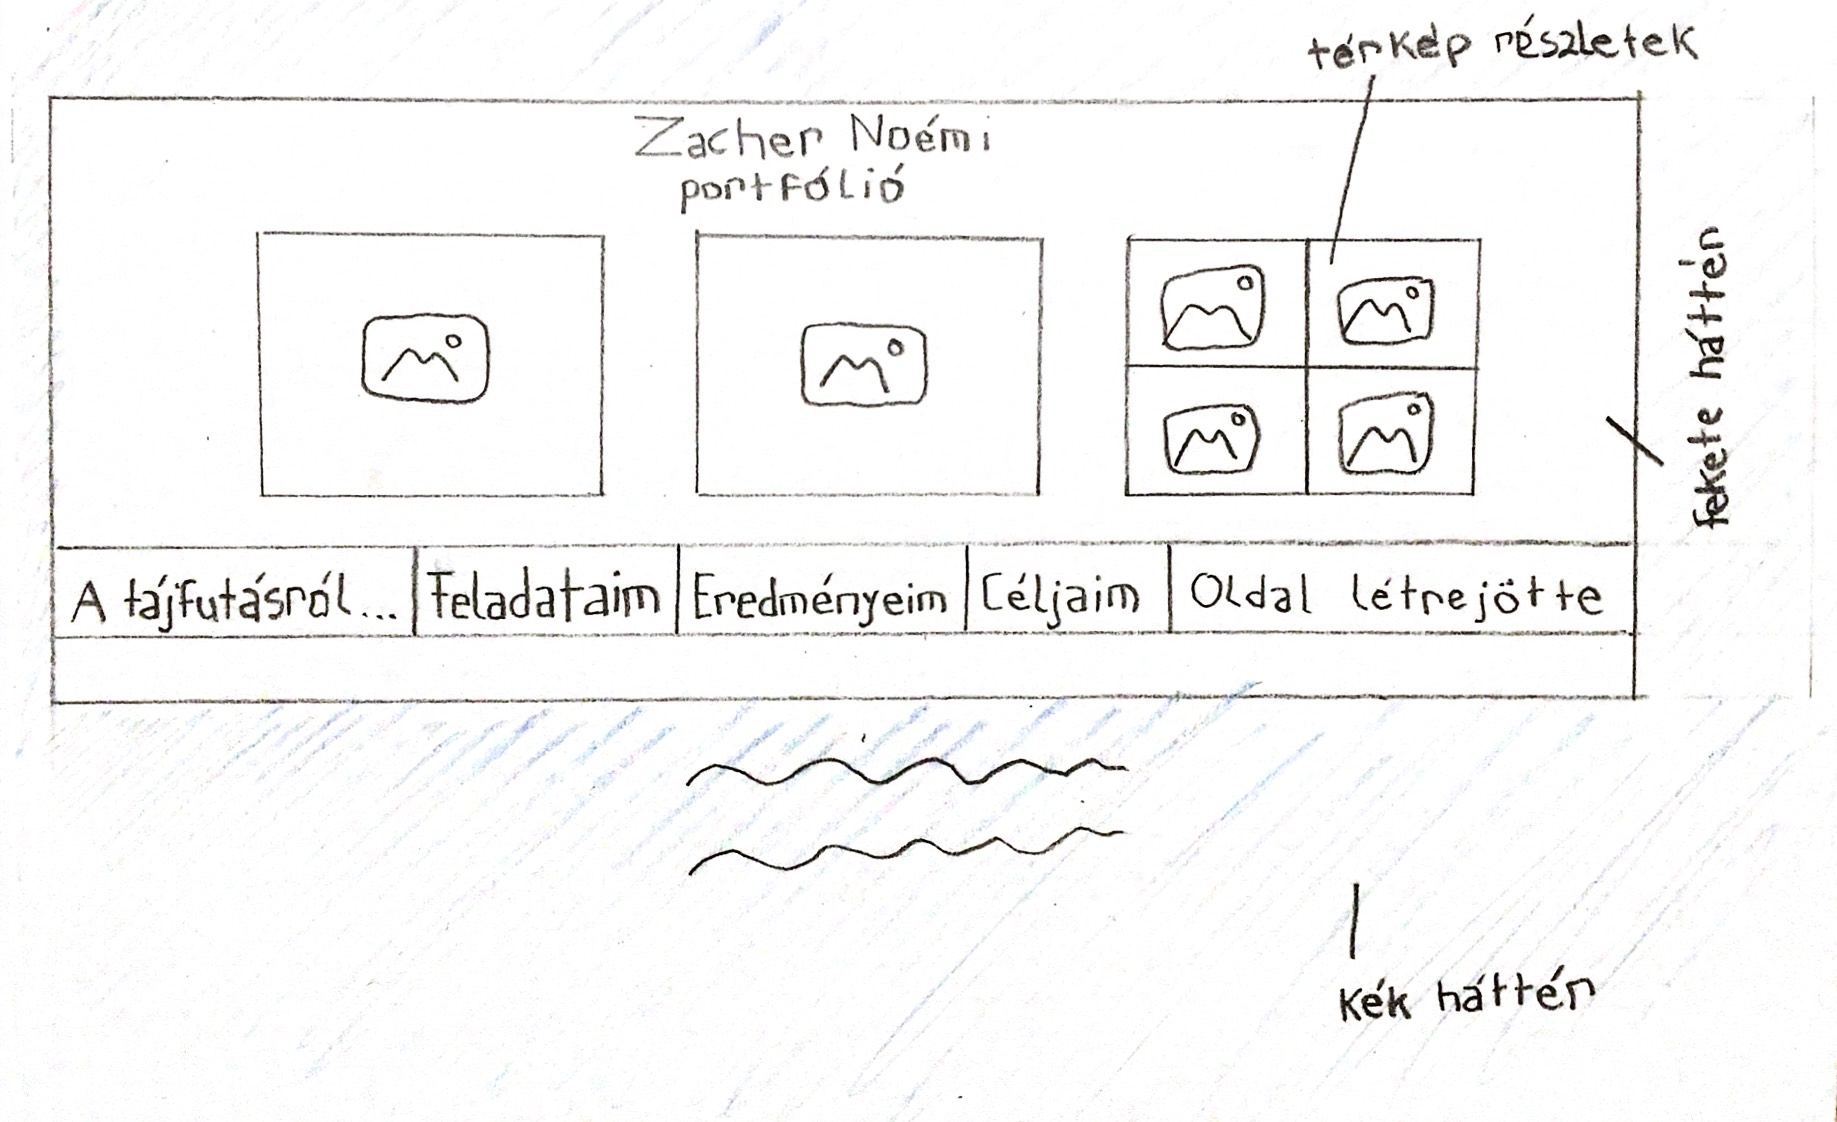 térkép részletek
Zacher Noémi
portfólió
fekete háttér
A tájfutásról...
Feladataim
Eredményeim
Céljaim
Oldal létrejötte
kék háttér